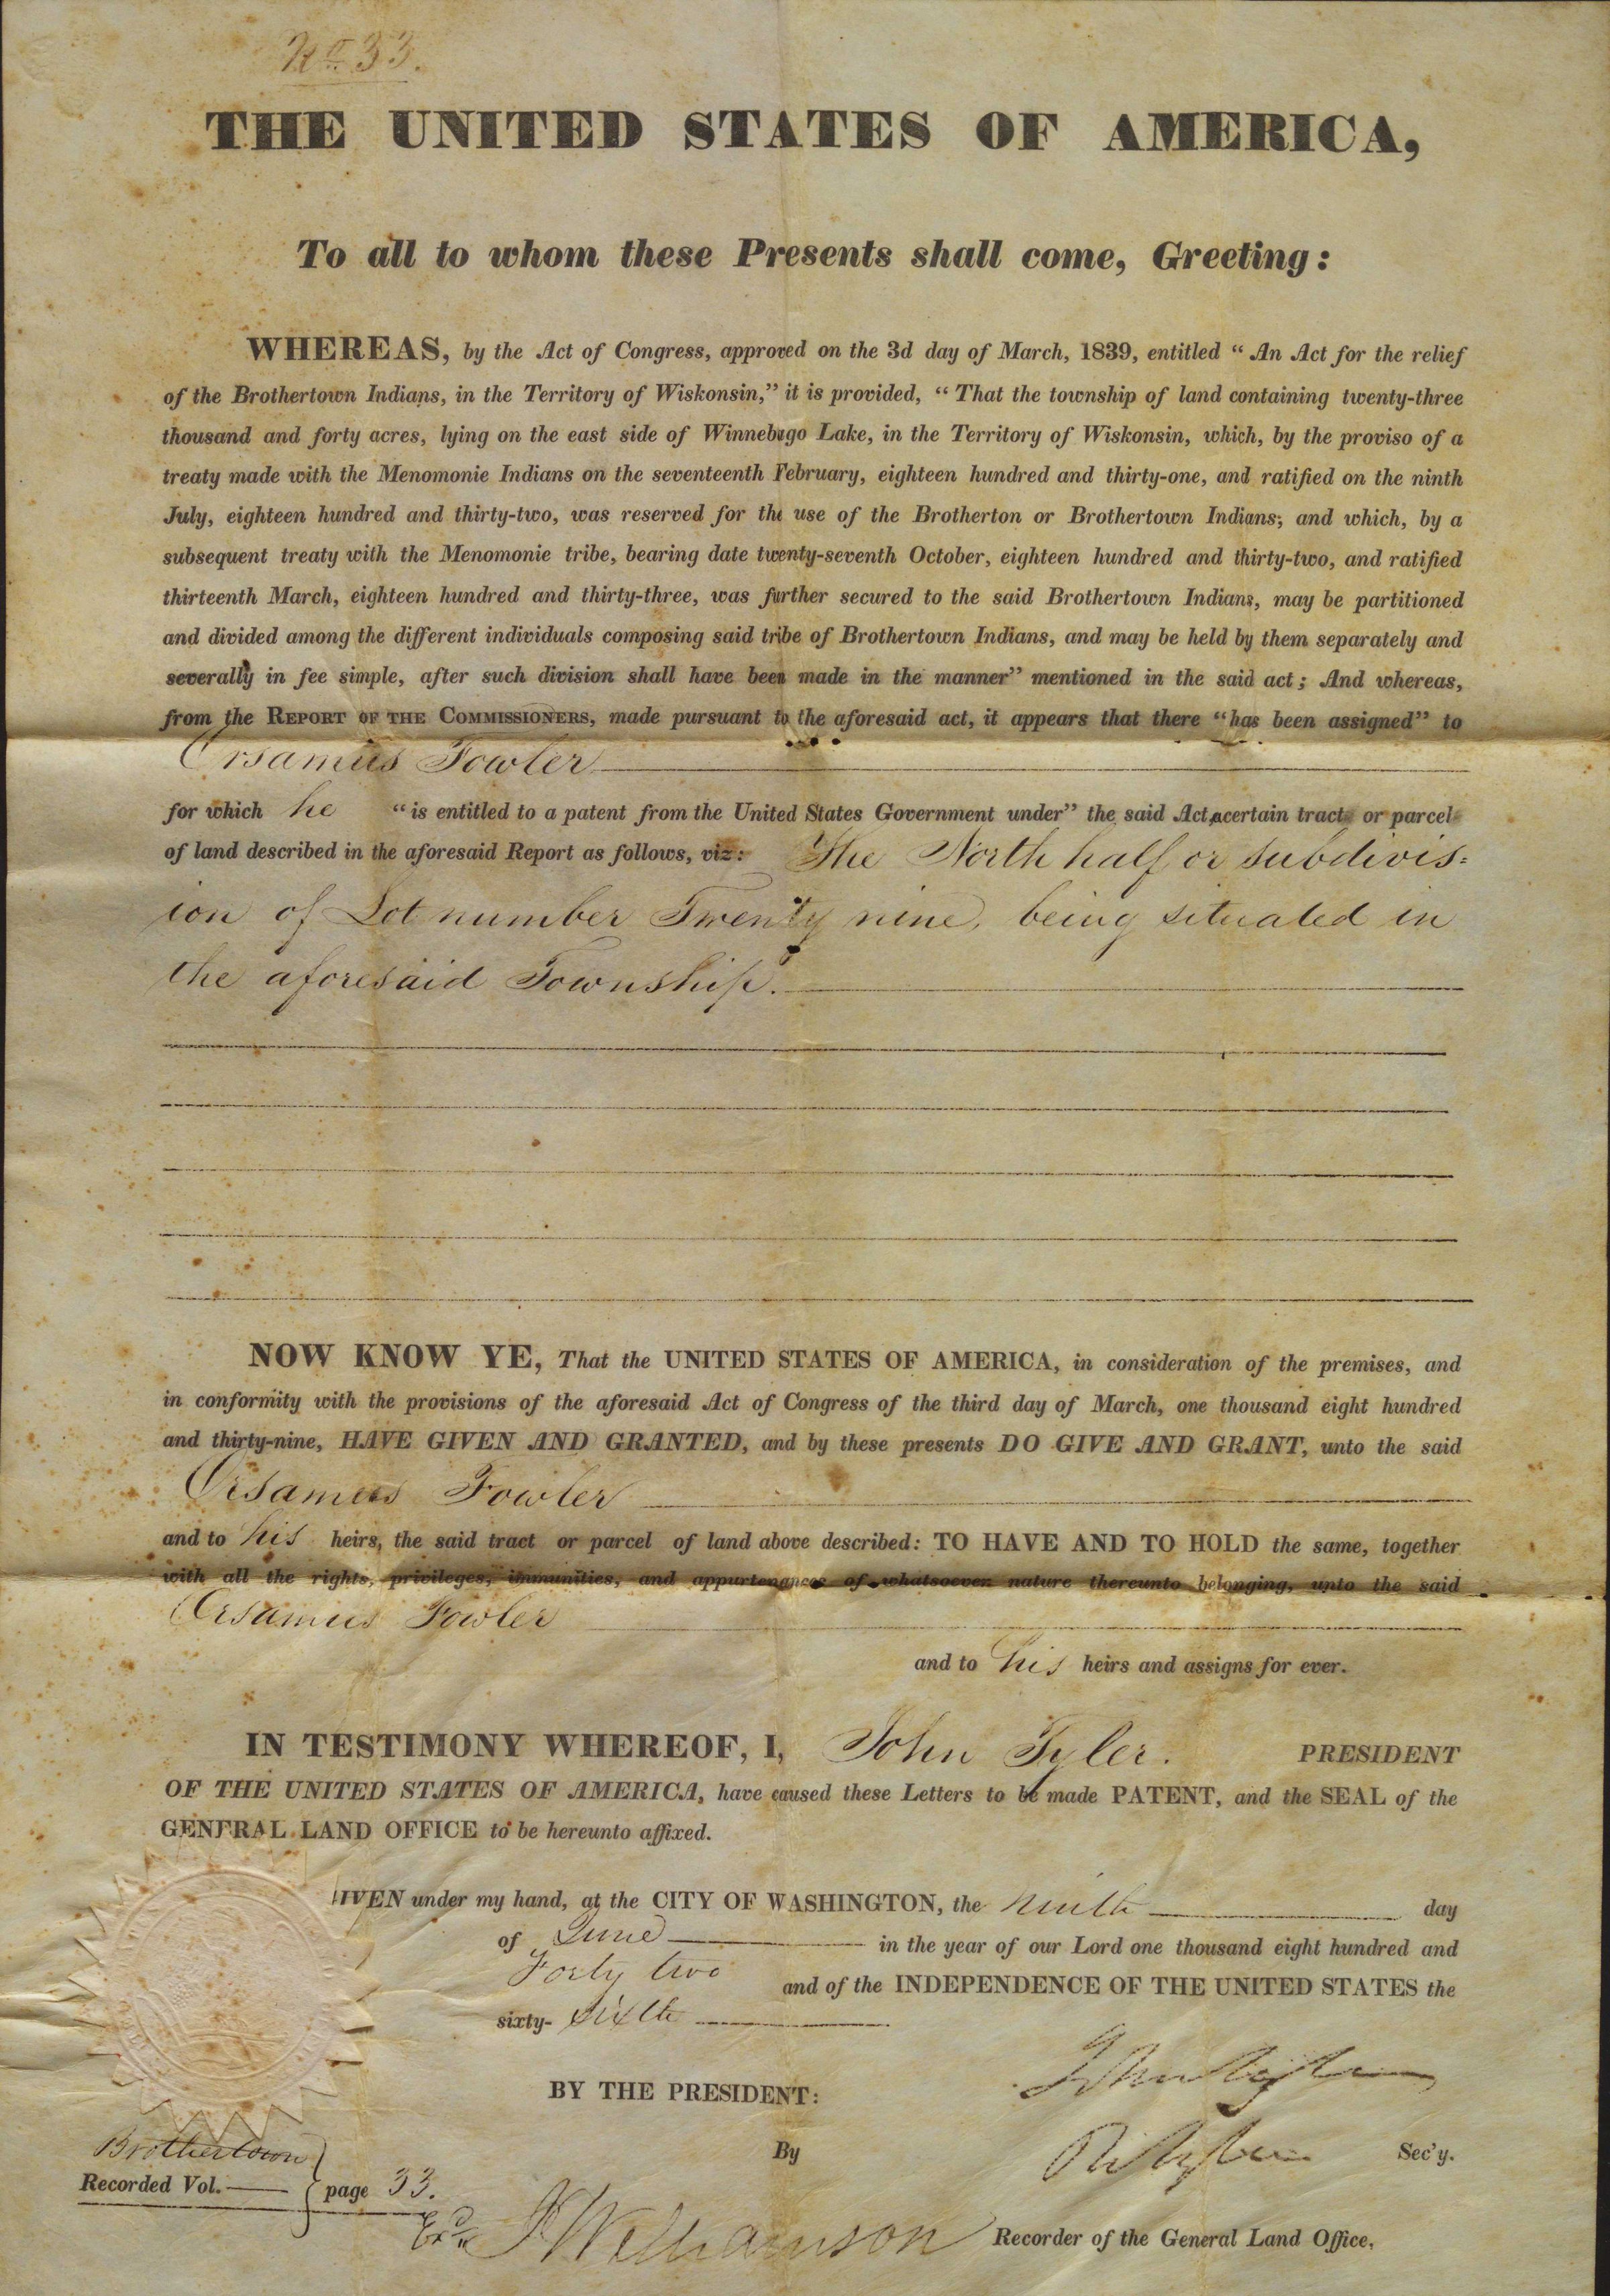 No. 33.
THE UNITED STATES OF AMERICA,
To all to whom these Presents shall come, Greeting:
WHEREAS, by the Act of Congress, approved on the 3d day of March, 1839, entitled “An Act for the relief
of the Brothertown Indians, in the Territory of Wiskonsin,” it is provided, “That the township of land containing twenty-three
thousand and forty acres, lying on the east side of Winnebago Lake, in the Territory of Wiskonsin, which, by the proviso of a
treaty made with the Menomonie Indians on the seventeenth February, eighteen hundred and thirty-one, and ratified on the ninth
July, eighteen hundred and thirty-two, was reserved for the use of the Brotherton or Brothertown Indians; and which, by a
subsequent treaty with the Menomonie tribe, bearing date twenty-seventh October, eighteen hundred and thirty-two, and ratified
thirteenth March, eighteen hundred and thirty-three, was further secured to the said Brothertown Indians, may be partitioned
and divided among the different individuals composing said tribe of Brothertown Indians, and may be held by them separately and
severally in fee simple, after such division shall have been made in the manner” mentioned in the said act; And whereas,
from the REPORT OF THE COMMISSIONERS, made pursuant to the aforesaid act, it appears that there “has been assigned” to
Orsamus Fowler
for which he “is entitled to a patent from the United States Government under” the said Act, a certain tract or parcel
of land described in the aforesaid Report as follows, viz: The North half or subdivis=
ion of Lot number Twenty nine, being situated in
the aforesaid Township.
NOW KNOW YE, That the UNITED STATES OF AMERICA, in consideration of the premises, and
in conformity with the provisions of the aforesaid Act of Congress of the third day of March, one thousand eight hundred
and thirty-nine, HAVE GIVEN AND GRANTED, and by these presents DO GIVE AND GRANT, unto the said
Orsamus Fowler
and to his heirs, the said tract or parcel of land above described: TO HAVE AND TO HOLD the same, together
with all the rights, privileges, immunities, and appurtenances of whatsoever nature thereunto belonging, unto the said
Orsamus Fowler
and to his heirs and assigns for ever.
IN TESTIMONY WHEREOF, I, John Tyler. PRESIDENT
OF THE UNITED STATES OF AMERICA, have caused these Letters to be made PATENT, and the SEAL of the
GENERAL LAND OFFICE to be hereunto affixed.
GIVEN under my hand, at the CITY OF WASHINGTON, the ninth day
of June in the year of our Lord one thousand eight hundred and
Forty two and of the INDEPENDENCE OF THE UNITED STATES the
sixty- sixth
BY THE PRESIDENT: John Tyler
By R Tyler Sec'y.
Brothertown
Recorded Vol. page 33.
Exd. J Williamson Recorder of the General Land Office.